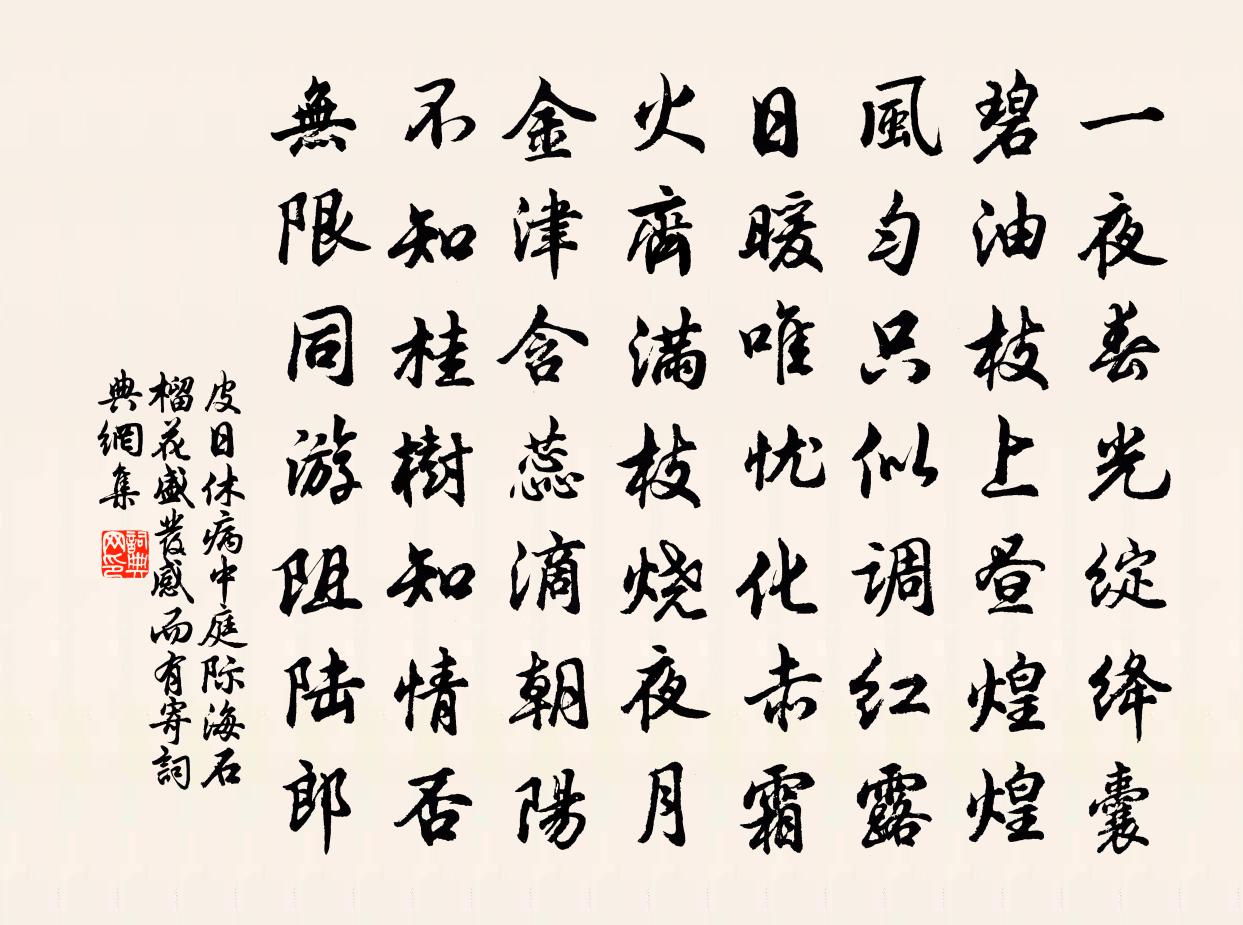 一夜春光綻绛囊
碧油枝上昼煌煌
風匀只似调紅露
日暖唯忧化赤霜
火齊满枝烧夜月
金津含蕊滴朝陽
不知桂樹知情否
無限同游阻陆郎
皮日休病中庭际海石
榴花盛發感而有寄詞
典網集
詞典网印